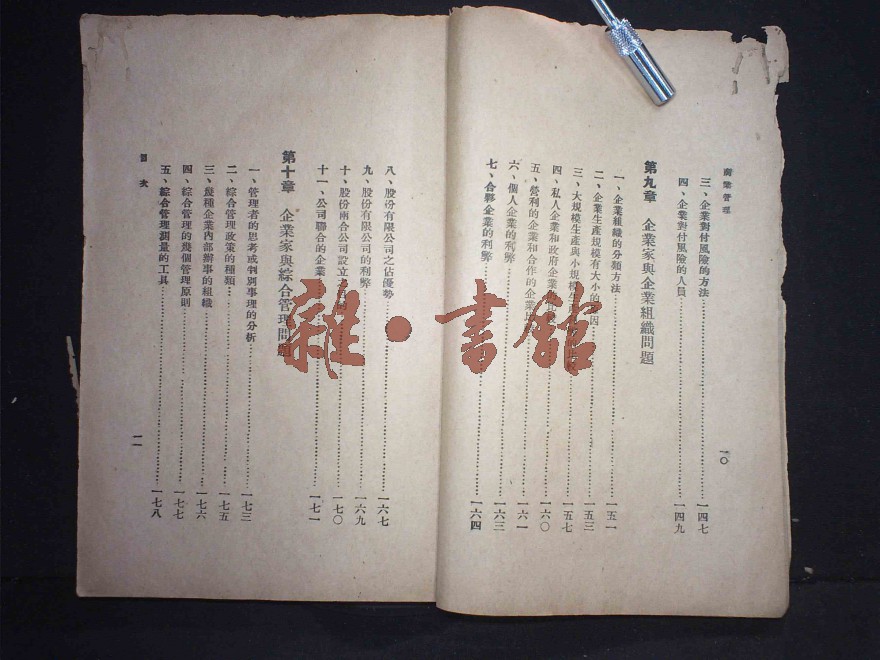 商業管理
一〇
三、企業對付風險的方法……一四七
四、企業對付風險的人員……一四九
第九章 企業家與企業組織問題
一、企業組織的分類方法……一五一
二、企業生產規模有大小的原因……一五三
三、大規模生產與小規模生產……一五七
四、私人企業和政府企業……一六〇
五、營利的企業和合作的企業……一六一
六、個人企業的利弊……一六三
七、合夥企業的利弊……一六四
八、股份有限公司之佔優勢……一六七
九、股份有限公司的利弊……一六九
十、股份兩合公司設立之……一七〇
十一、公司聯合的企業……一七一
第十章 企業家與綜合管理問題
一、管理者的思考或判別事理的分析……一七三
二、綜合管理政策的種類……一七五
三、幾種企業內部辦事的組織……一七六
四、綜合管理的幾個管理原則……一七七
五、綜合管理測量的工具……一七八
目次
一一
雜·書館